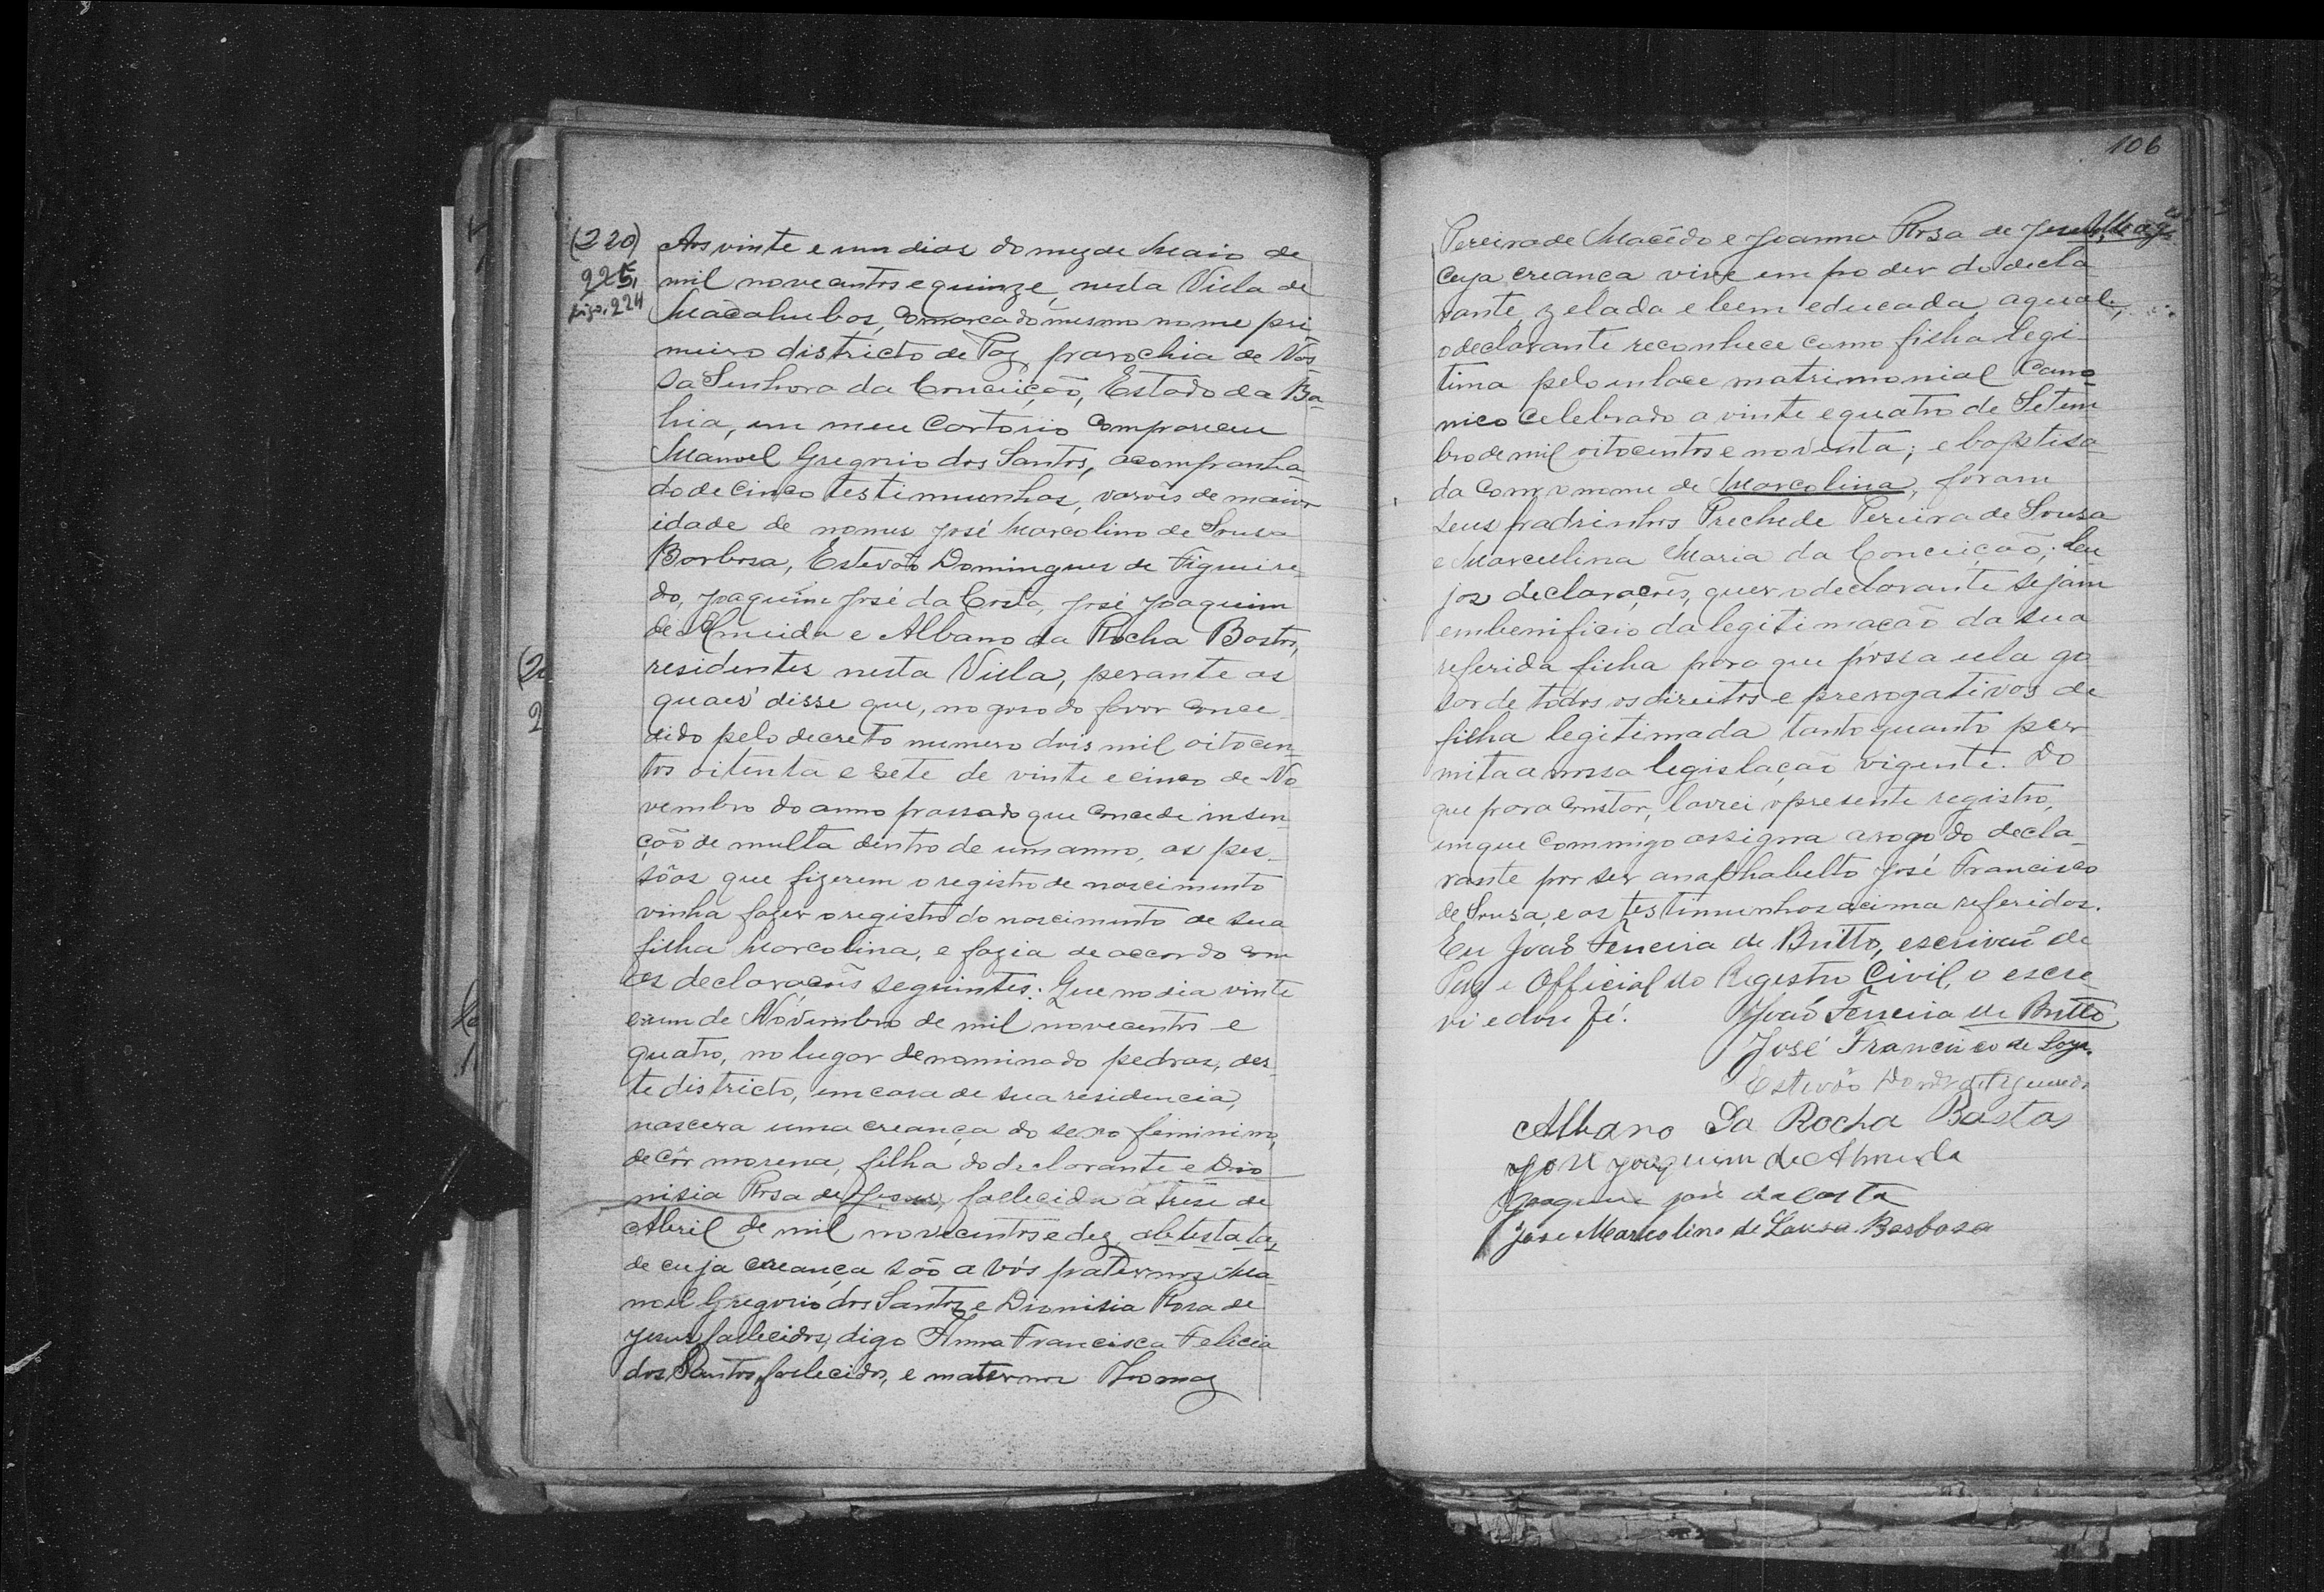 106
(220)
225,
digo, 224
Aos vinte e um dias do mez de Maio de
mil novecentos e quinze, nesta Villa de
Macahubas, Comarca do mesmo nome pri
meiro districto de Paz, parochia de Nos
sa Senhora da Conceição, Estado da Ba-
hia, em meu Cartorio Compareceu
Manoel Gregorio dos Santos, acompanha-
do de cinco testimunhas, varões de maior
idade de nomes José Marcolino de Sousa
Barbosa, Estevão Domingues de Figueire-
do, Joaquim José da Costa, José Joaquim
de Almeida e Albano da Rocha Bastos,
residentes nesta Villa, perante as
quaes disse que, no goso do favor conce-
dido pelo decreto numero dois mil oitocen-
tos oitenta e sete de vinte e cinco de No
vembro do anno passado que concede insen-
ção de multa dentro de um anno, as pes-
sôas que fizerem o registro de nascimento
vinha fazer o registro do nascimento de sua
filha Marcolina, e fazia de accordo com
as declarações seguintes: Que no dia vinte
e um de Novembro de mil novecentos e
quatro, no lugar denominado pedras, des-
te districto, em casa de sua residencia,
nascera uma creança do sexo feminino,
de côr morena, filha do declarante e Dio
nisia Rosa de Jesus, fallecida a trese de
Abril de mil novecentos e dez, abtestata,
de cuja creança são avós paternos Ma-
noel Gregorio dos Santos e Dionisia Rosa de
Jesus, fallecidos, digo Anna Francisca Felicia
dos Santos, fallecidos, e maternos Thomaz
Pereira de Macêdo e Joanna Rosa de Jesus,
cuja creanca vive em poder do decla
rante, zelada e bem educada, a qual,
o declarante reconhece como filha legi-
tima pelo enlace matrimonial Cano-
nico celebrado a vinte e quatro de Setem
bro de mil oitocentos e noventa; e baptisa-
da com o nome de Marcolina, foram
seus padrinhos Prechede Pereira de Sousa
e Marculina Maria da Conceição; Cu
jas declarações, quer o declarante sejam
em benificio da legitimacão da sua
referida filha para que possa ella go
sar de todos os direitos e prerogativas de
filha legitimada tanto quanto per
mita a nossa legislação vigente. Do
que para constar, lavrei o presente registro,
em que commigo assigna a rogo do decla-
rante por ser anaphabelto José Francisco
de Sousa, e as testimunhas acima referidas.
Eu João Ferreira de Britto, escrivão de
Paz e Official do Registro Civil, o escre
vi e dou fé. João Ferreira de Britto
José Francisco de Soza.
Estevão
Albano Da Rocha Bastos
José Joaquim de Almeida
Joaquim José da Costa
José Marcolino de Sousa Barbosa